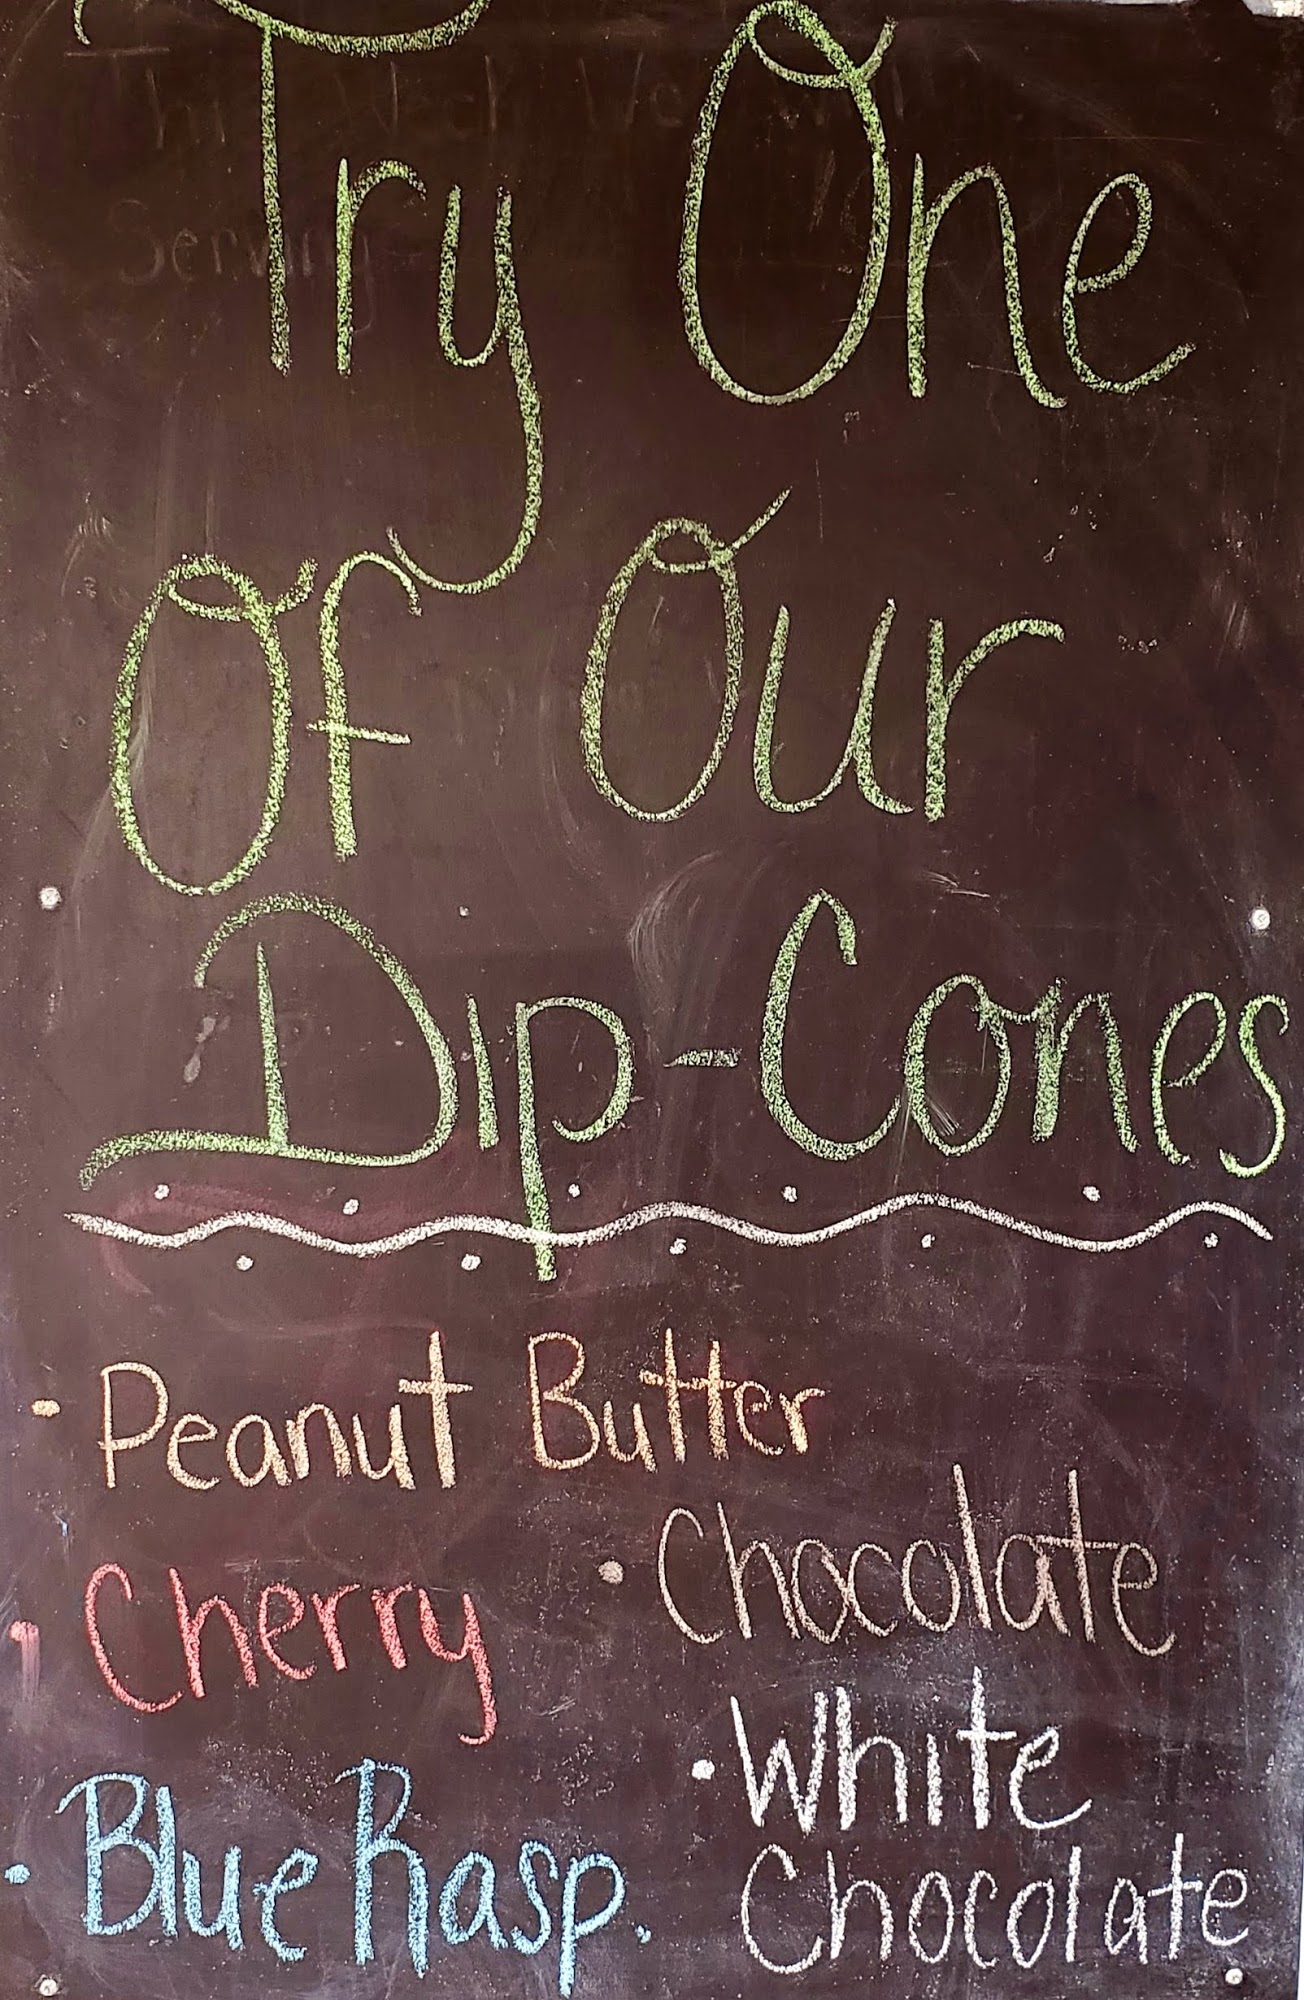 Try One
Of Our
Dip-Cones
- Peanut Butter
• Chocolate
Cherry
• White
Chocolate
• Blue Rasp.
Serving